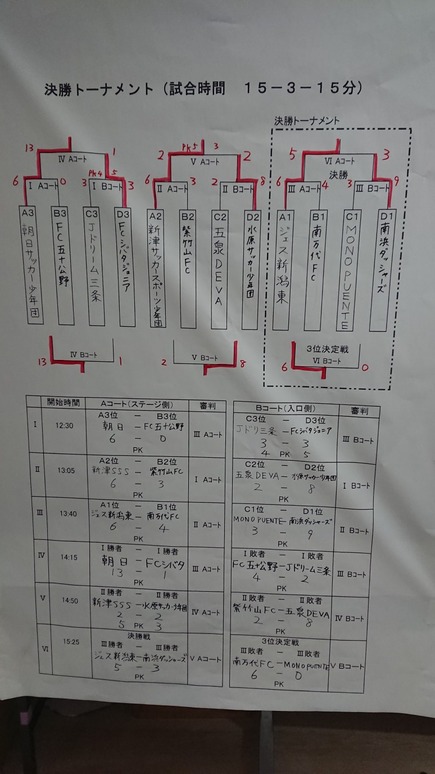 決勝トーナメント（試合時間 15－3－15分）
決勝トーナメント
13 1 2 PK5 3 2 5 3
Ⅳ Aコート Ⅴ Aコート Ⅵ Aコート
決勝
PK4 5
6 0 3 3 6 3 2 8 6 4 3 9
Ⅰ Aコート Ⅰ Bコート Ⅱ Aコート Ⅱ Bコート Ⅲ Aコート Ⅲ Bコート
A3 朝日サッカー少年団
B3 FC五十公野
C3 Jドリーム三条
D3 FCシバタジュニア
A2 新津サッカースポーツ少年団
B2 紫竹山FC
C2 五泉DEVA
D2 水原サッカー少年団
A1 ジェス新潟東
B1 南万代FC
C1 MONO PUENTE
D1 南浜ダッシャーズ
3位決定戦
13 Ⅳ Bコート 1 2 Ⅴ Bコート 8 6 Ⅵ Bコート 0
開始時間 Aコート(ステージ側) 審判 Bコート(入口側) 審判
A3位 － B3位 C3位 － D3位
Ⅰ 12:30 朝日 － FC五十公野 Ⅲ Aコート Jドリ三条－FCシバタジュニア Ⅲ Bコート
6 － 0 3 － 3
PK 4 PK 5
A2位 － B2位 C2位 － D2位
Ⅱ 13:05 新津SSS－紫竹山FC Ⅰ Aコート 五泉DEVA－水原サッカー少年団 Ⅰ Bコート
6 － 3 2 － 8
PK PK
A1位 － B1位 C1位 － D1位
Ⅲ 13:40 ジェス新潟東－南万代FC Ⅱ Aコート MONO PUENTE－南浜ダッシャーズ Ⅱ Bコート
6 － 4 3 － 9
PK PK
Ⅰ勝者 － Ⅰ勝者 Ⅰ敗者 － Ⅰ敗者
Ⅳ 14:15 朝日 － FCシバタ Ⅲ Aコート FC五十公野－Jドリーム三条 Ⅲ Bコート
13 － 1 4 － 2
PK PK
Ⅱ勝者 － Ⅱ勝者 Ⅱ敗者 － Ⅱ敗者
Ⅴ 14:50 新津SSS－水原サッカー少年団 Ⅳ Aコート 紫竹山FC－五泉DEVA Ⅳ Bコート
2 － 2 2 － 8
5 PK 3 PK
決勝戦 3位決定戦
Ⅲ勝者 － Ⅲ勝者 Ⅲ敗者 － Ⅲ敗者
Ⅵ 15:25 ジェス新潟東－南浜ダッシャーズ Ⅴ Aコート 南万代FC－MONO PUENTE Ⅴ Bコート
5 － 3 6 － 0
PK PK